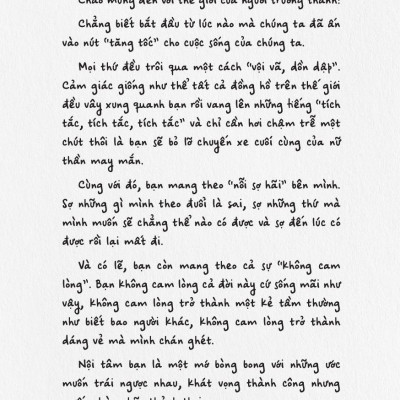 Chào mừng đến với thế giới của người trưởng thành!
Chẳng biết bắt đầu từ lúc nào mà chúng ta đã ấn
vào nút "tăng tốc" cho cuộc sống của chúng ta.
Mọi thứ đều trôi qua một cách "vội vã, dồn dập".
Cảm giác giống như thể tất cả đồng hồ trên thế giới
đều vây xung quanh bạn rồi vang lên những tiếng "tích
tắc, tích tắc, tích tắc" và chỉ cần hơi chậm trễ một
chút thôi là bạn sẽ bỏ lỡ chuyến xe cuối cùng của nữ
thần may mắn.
Cùng với đó, bạn mang theo "nỗi sợ hãi" bên mình.
Sợ những gì mình theo đuổi là sai, sợ những thứ mà
mình muốn sẽ chẳng thể nào có được và sợ đến lúc có
được rồi lại mất đi.
Và có lẽ, bạn còn mang theo cả sự "không cam
lòng". Bạn không cam lòng cả đời này cứ sống mãi như
vậy, không cam lòng trở thành một kẻ tầm thường
như biết bao người khác, không cam lòng trở thành
dáng vẻ mà mình chán ghét.
Nội tâm bạn là một mớ bòng bong với những ước
muốn trái ngược nhau, khát vọng thành công nhưng